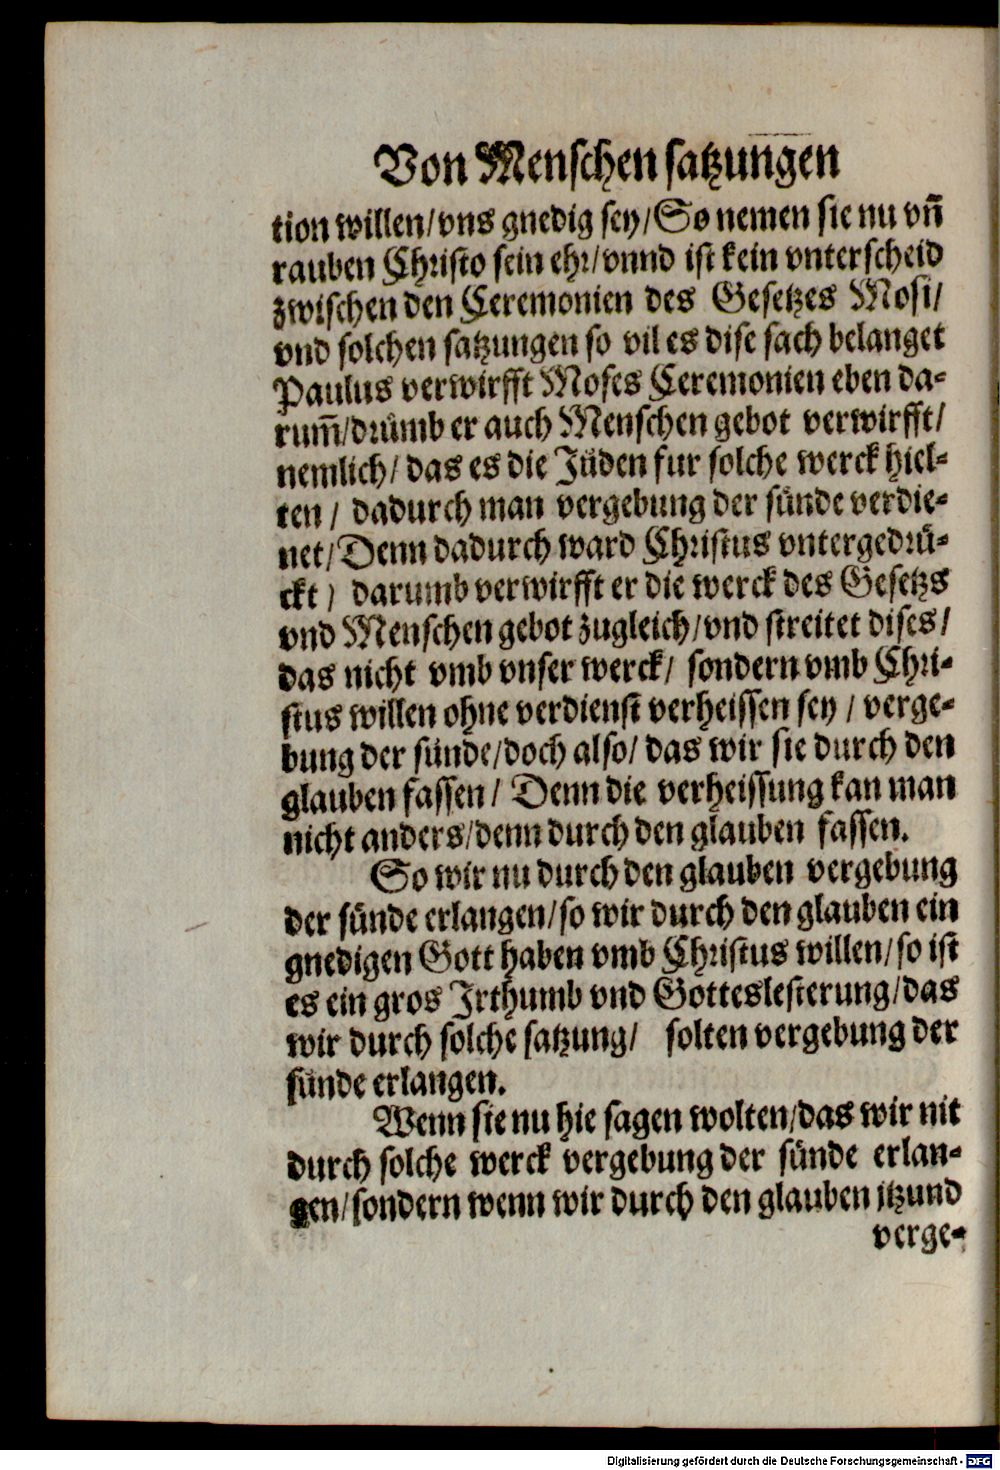 Von Menschen satzungen
tion willen/vns gnedig sey/So nemen sie nu vñ
rauben Christo sein ehr/vnnd ist kein vnterscheid
zwischen den Ceremonien des Gesetzes Mosi/
vnd solchen satzungen so vil es dise sach belanget
Paulus verwirfft Moses Ceremonien eben da-
rum̃/drůmb er auch Menschen gebot verwirfft/
nemlich/ das es die Jüden fur solche werck hiel-
ten/ dadurch man vergebung der sünde verdie-
net/Denn dadurch ward Christus vntergedrü-
ckt/ darumb verwirfft er die werck des Gesetzs
vnd Menschen gebot zugleich/vnd streitet dises/
das nicht vmb vnser werck/ sondern vmb Chri-
stus willen ohne verdienst verheissen sey/ verge-
bung der sünde/doch also/ das wir sie durch den
glauben fassen/ Denn die verheissung kan man
nicht anders/denn durch den glauben fassen.
So wir nu durch den glauben vergebung
der sünde erlangen/so wir durch den glauben ein
gnedigen Gott haben vmb Christus willen/so ist
es ein gros Irthumb vnd Gotteslesterung/das
wir durch solche satzung/ solten vergebung der
sünde erlangen.
Wenn sie nu hie sagen wolten/das wir nit
durch solche werck vergebung der sünde erlan-
gen/sondern wenn wir durch den glauben itzund
verge-
Digitalisierung gefördert durch die Deutsche Forschungsgemeinschaft - DFG